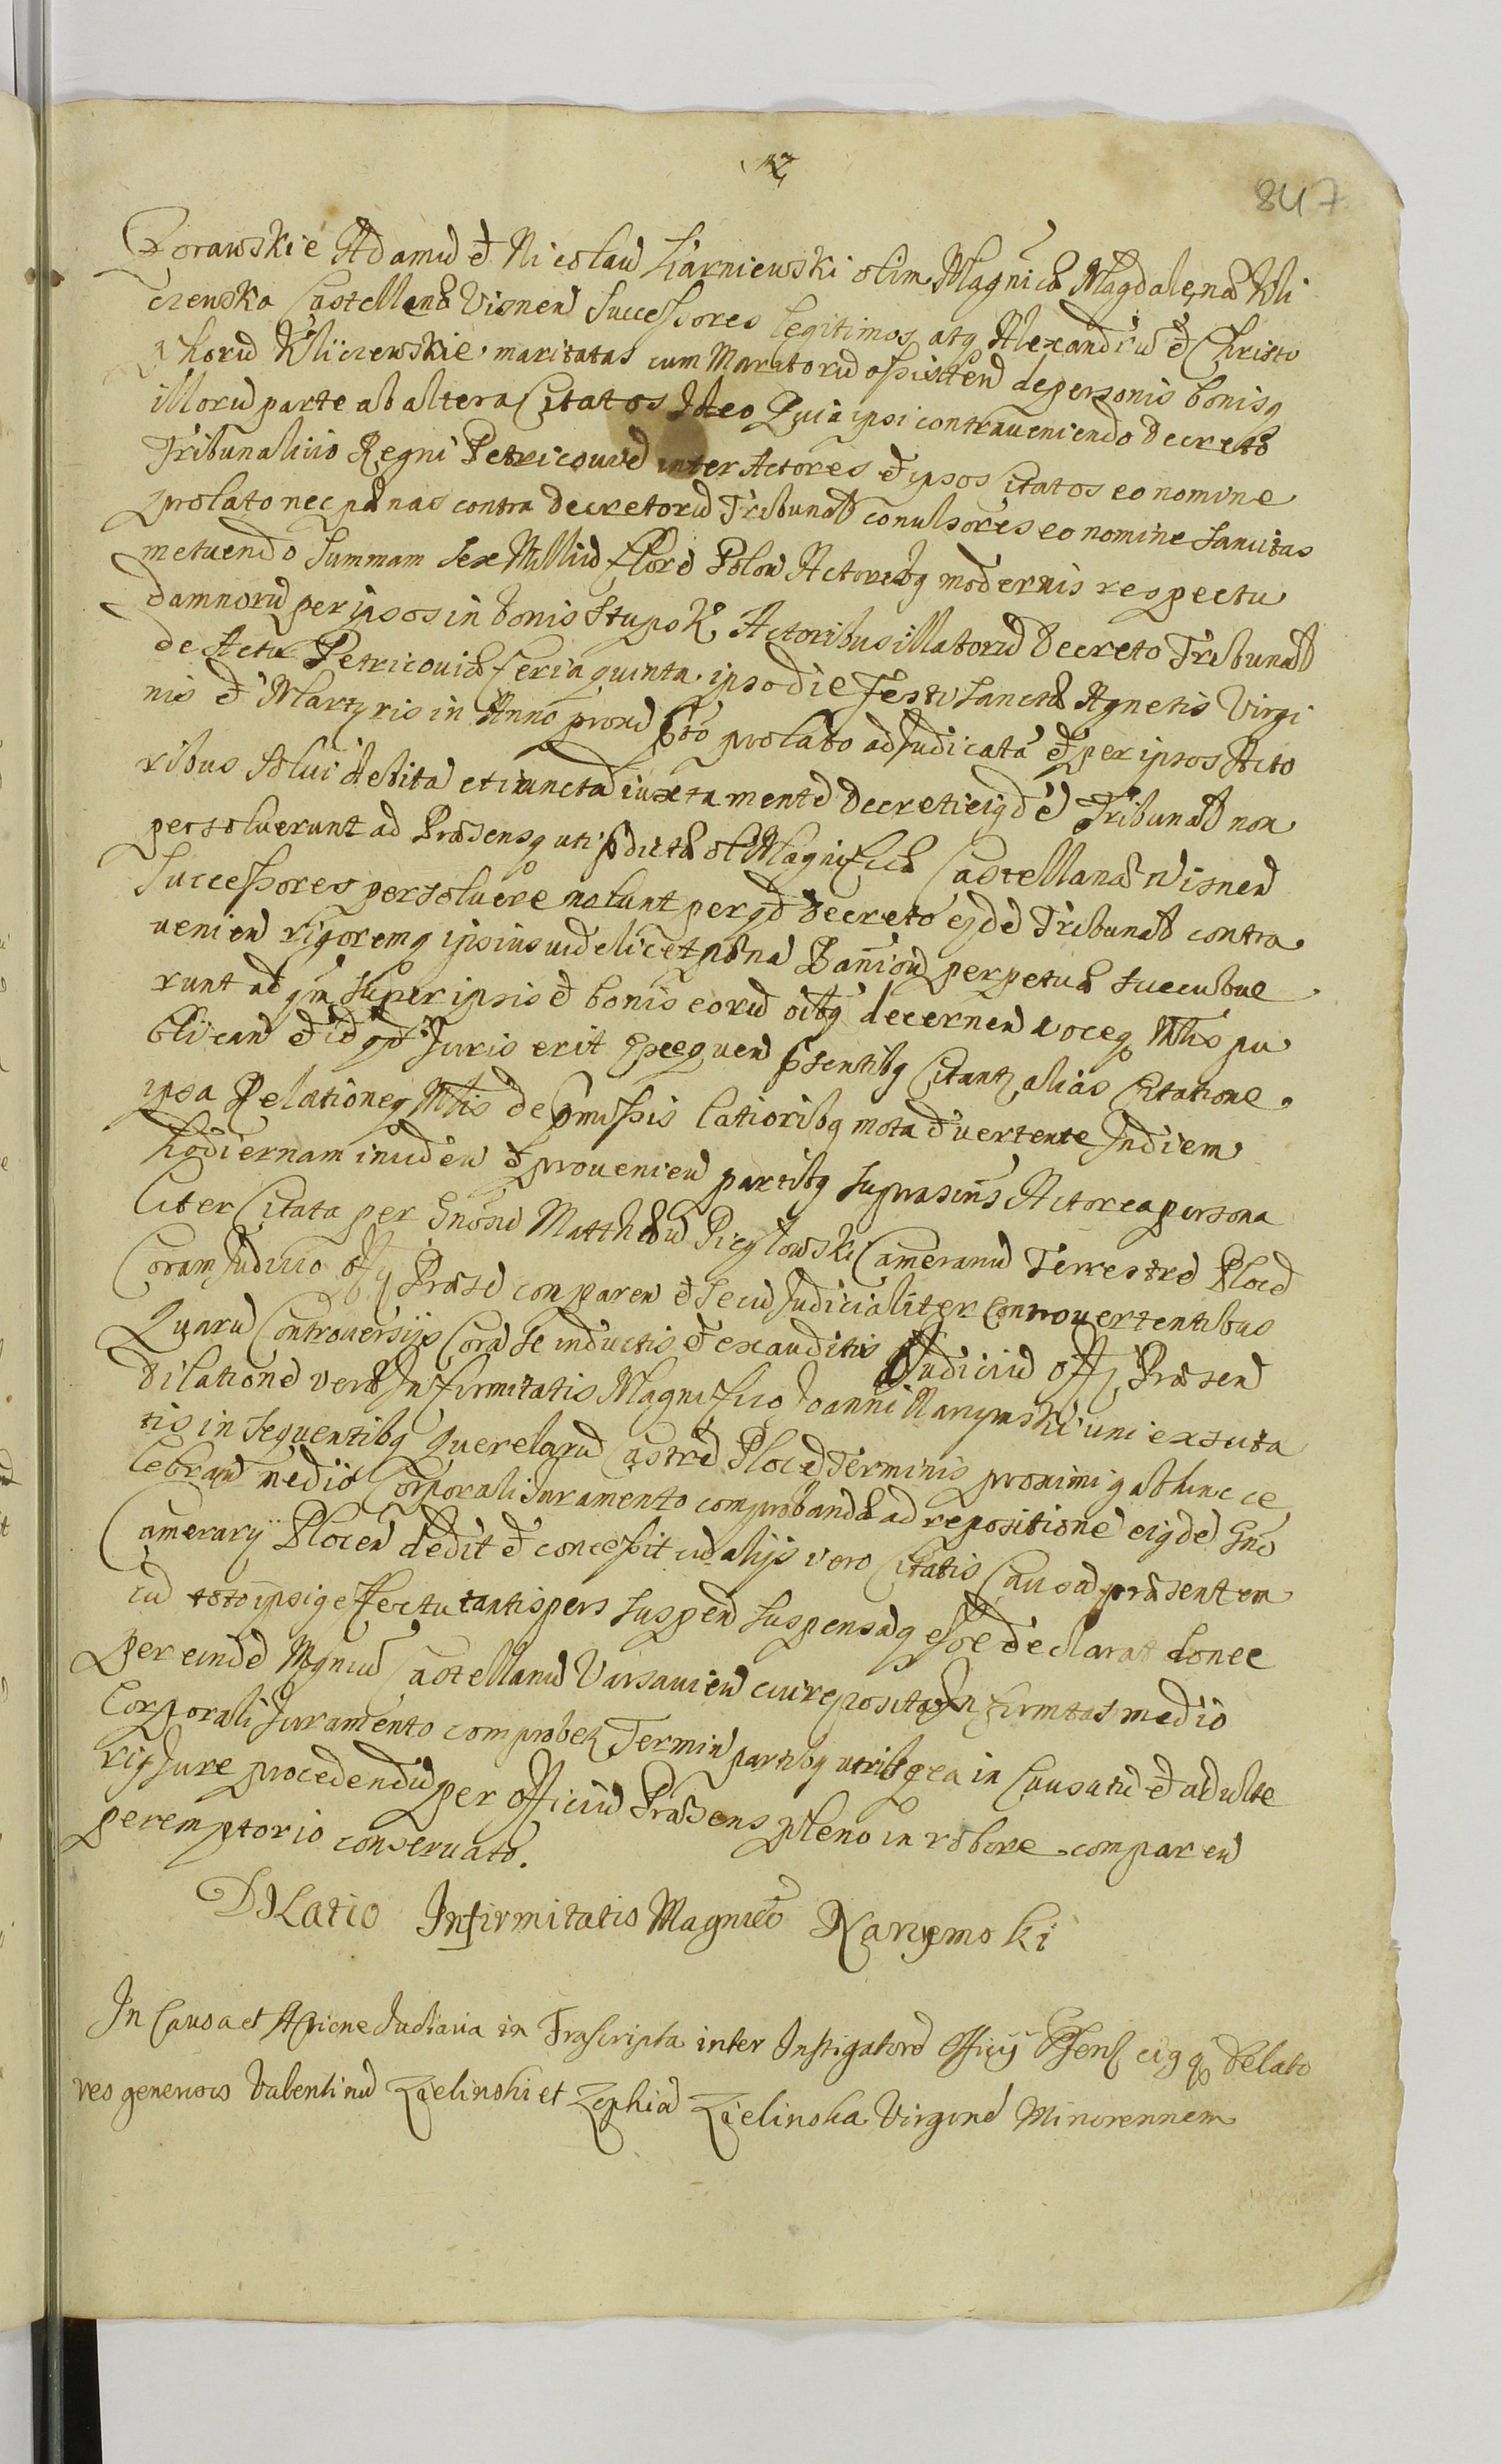 847
Zorawskie Adamū et Nicolaū Karniewski olim Magnicæ Magdalenæ Kli
czewska Castellanæ Visnen Successores legitimos atq Alexandrū et Christo
phorū Kliczewskie maritatas cum Maritorū assisten de personis bonisq
illorū parte ab altera Citatos Ideo Quia ipsi contraueniendo Decreto
Tribunalitio Regni Petricouien inter Actores et ipsos Citatos eo nomine
prolato nec pænas contra decretorū Tribunal conulsores eo nomine sancitas
metuendo Summam Sex Milliū Flore Polon Actoribq modernis respectu
damnorū per ipsos in bonis Stupsk Actoribus illatorū Decreto Tribunal
de Actu Petricouiæ feria quinta ipso die Festi Sanctæ Agnetis Virgi
nis et Martyris in Anno proxe pto prolato adjudicatā et per ipsos Acto
ribus solui debitā et iunctā iuxta mente Decreti eiqde Tribunal non
persoluerunt ad Præsensq uti pdictæ ol Magnificæ Castellanæ Visnen
Successores persoluere nolunt per qd Decreto eqde Tribunal contra
uenien rigoremq ipsius videlicet pæna Bannion perpetuæ succubue
runt ad qm super ipsis et bonis eorū oibq decernen voceq Mlis pu
blican et id qd Juris erit exequen psentibq Citant alias Citatione
ipsa Relationeq Mlis de pmissis latioribq mota et vertente In diem
hodiernam inciden et prouenien partibq suprasms Actorea persona
liter Citata per Gnosū Matthæū Piczlowski Cameranū Terrestre Ploce
Coram Judicio Offi Præse comparen et secū Judicialiter Controuertentibus
Quarū Controuersijs Corā se inductis et exauditis Judiciū Offi Præsen
dilatione veræ Infirmitatis Magnifico Joanni Narzymski uni ex Cita
tis in sequentibq Querelarū Castre Ploce Terminis proximiq abhinc ce
lebran medio Corporali Juramento comprobandæ ad repositione eiqde Gno
Camerarij Plocen dedit et concessit cū alijs vero Citatis Causā præsentem
cū toto ipsiq effectu tantisper suspen suspensāq esse declarat donec
per eunde Mgnicū Castellanū Varsauien cui reposita Infirmitas medio
Corporali Juramento comprobet Termin partibq utribqea in Causa tū et ad ulte
riq Jure procedendū per officiū Præsens pleno in robore comparen
peremptorio conseruato.
Dilatio Infirmitatis Magnico Narzymski
In Causa et Actione Judiaria in Trascripta inter Instigatore Officij Psens eiqq Delato
res generosos Valentinū Zielinski et Zophiā Zielinska Virgine Minorennem